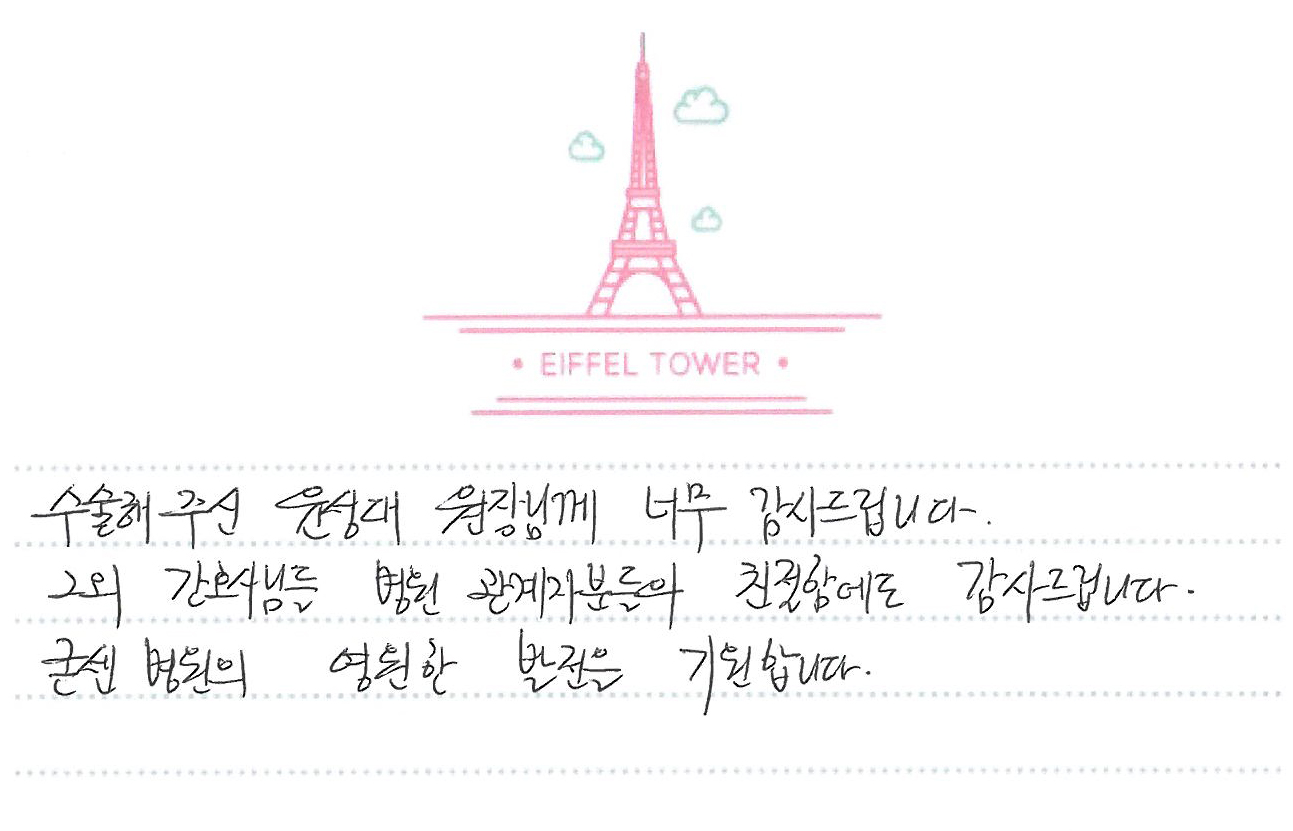 • EIFFEL TOWER •
수술해주신 윤상대 원장님께 너무 감사드립니다.
그외 간호사님들 병원 관계자분들의 친절함에도 감사드립니다.
굳센 병원의 영원한 발전을 기원합니다.